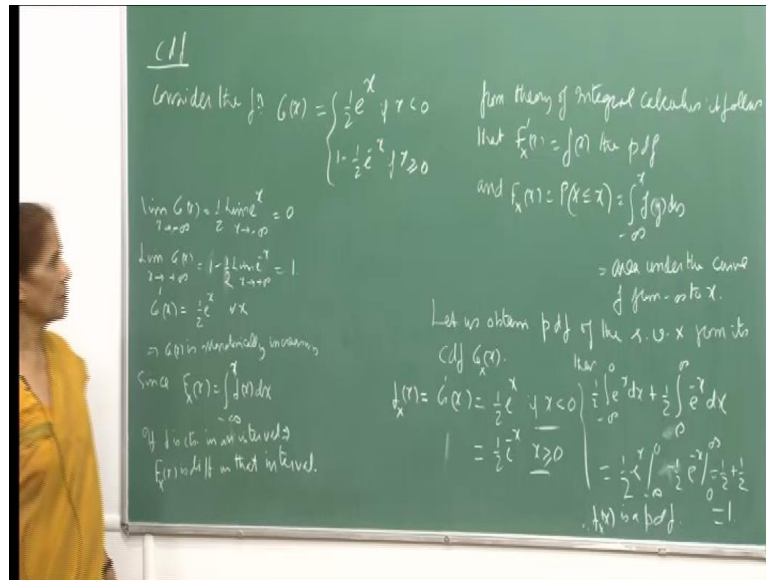 cdf
Consider the fⁿ G(x) = { ½ e^x if x < 0
1 - ½ e^-x if x ≥ 0
Lim G(x) = ½ Lim e^x = 0
x→-∞ x→-∞
Lim G(x) = 1 - ½ Lim e^-x = 1.
x→+∞ x→+∞
G'(x) = ½ e^x ∀x
⇒ G(x) is monotonically increasing
Since F_X(x) = ∫_-∞^x f(x) dx
If f is cts. in an interval ⇒
F_X(x) is diff in that interval.
from theory of integral calculus it follows
that F'_X(x) = f(x) the pdf
and F_X(x) = P(X ≤ x) = ∫_-∞^x f(y) dy
= area under the curve
f from -∞ to x.
Let us obtain pdf of the r.v. X from its
cdf G_X(x).
f_X(x) = G'(x) = ½ e^x if x < 0
= ½ e^-x x ≥ 0
then
½ ∫_-∞^0 e^x dx + ½ ∫_0^∞ e^-x dx
= ½ e^x |_-∞^0 - ½ e^-x |_0^∞ = ½ + ½
∴ f_X(x) is a pdf. = 1